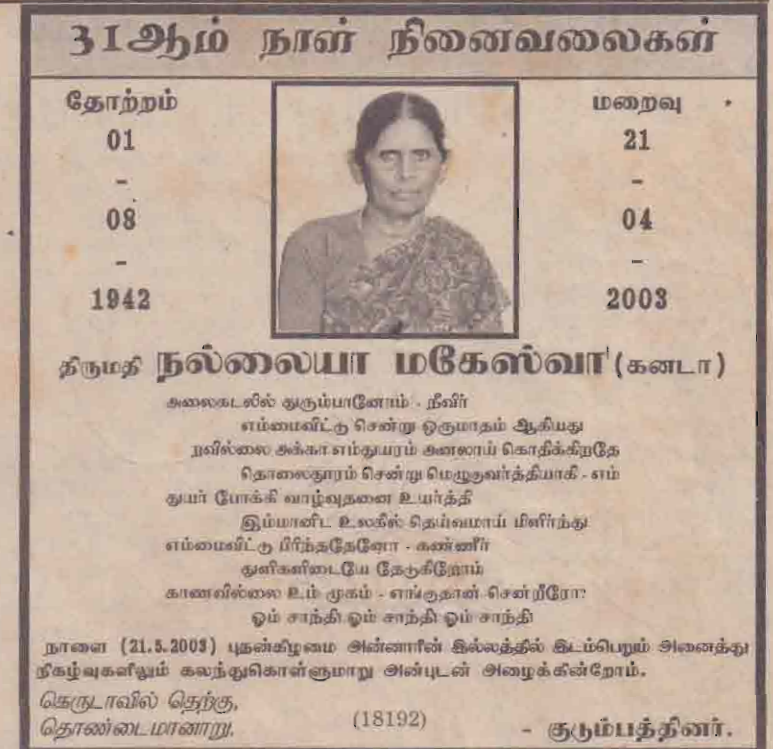 31ஆம் நாள் நினைவலைகள்
தோற்றம்
01
-
08
-
1942
மறைவு
21
-
04
-
2003
திருமதி நல்லையா மகேஸ்வா (கனடா)
அலைகடலில் துரும்பானோம் - நீவிர்
எம்மைவிட்டு சென்று ஒருமாதம் ஆகியது
றவில்லை அக்கா எம்துயரம் அனலாய் கொதிக்கிறதே
தொலைதூரம் சென்று மெழுகுவர்த்தியாகி - எம்
துயர் போக்கி வாழ்வுதனை உயர்த்தி
இம்மானிட உலகில் தெய்வமாய் மிளிர்ந்து
எம்மைவிட்டு பிரிந்ததேனோ - கண்ணீர்
துளிகளிடையே தேடுகிறோம்
காணவில்லை உம் முகம் - எங்குதான் சென்றீரோ?
ஓம் சாந்தி ஓம் சாந்தி ஓம் சாந்தி
நாளை (21.5.2003) புதன்கிழமை அன்னாரின் இல்லத்தில் இடம்பெறும் அனைத்து
நிகழ்வுகளிலும் கலந்துகொள்ளுமாறு அன்புடன் அழைக்கின்றோம்.
கெருடாவில் தெற்கு,
தொண்டைமானாறு.
(18192)
- குடும்பத்தினர்.